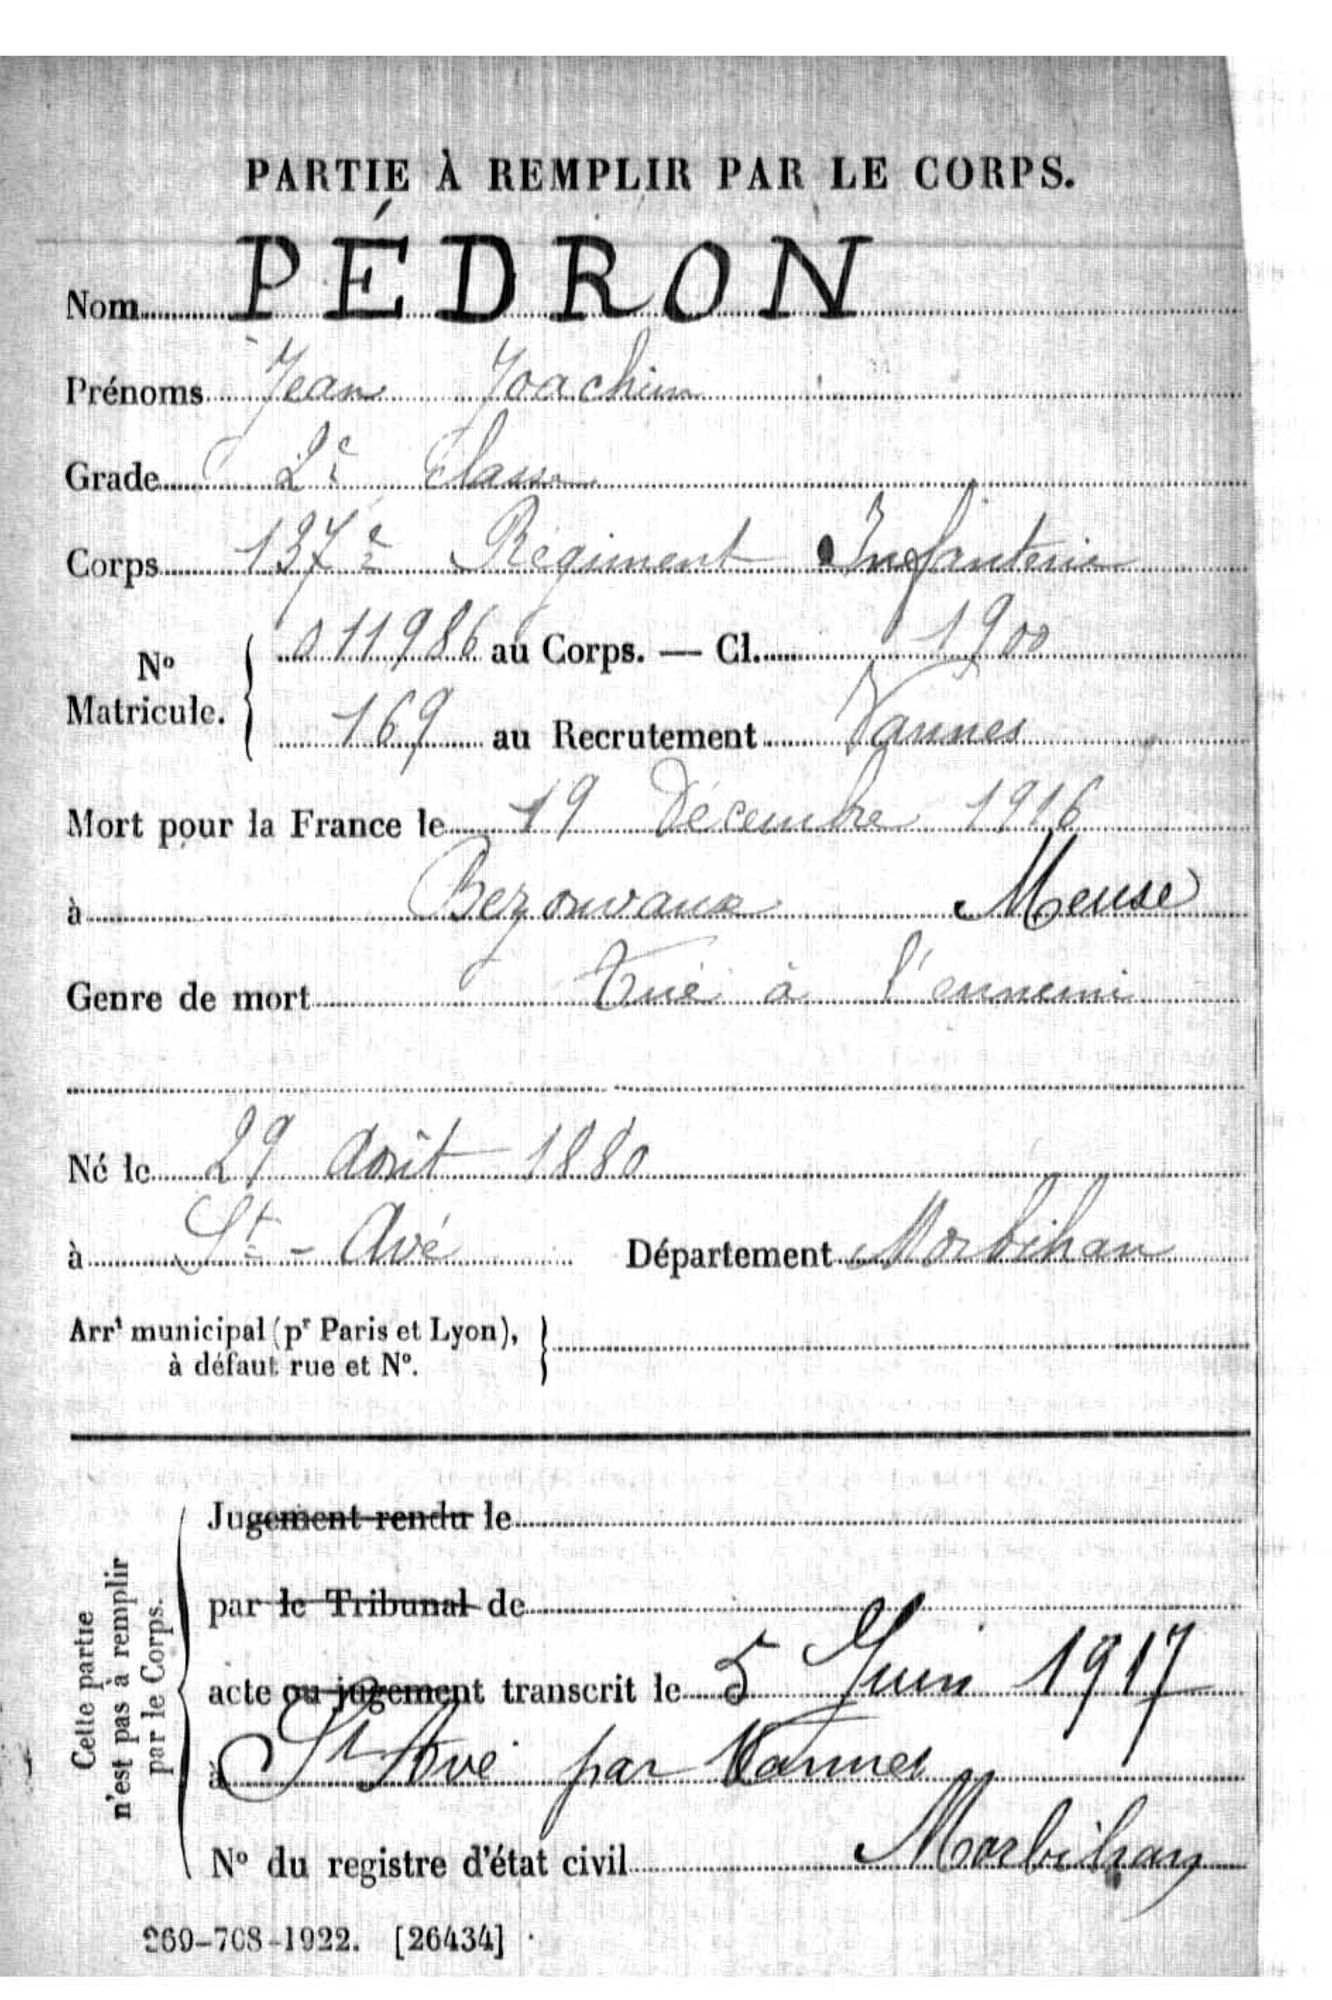 PARTIE À REMPLIR PAR LE CORPS.
Nom PÉDRON
Prénoms Jean Joachim
Grade 2e classe
Corps 137e Régiment Infanterie
No Matricule. { 011986 au Corps. — Cl. 1900
169 au Recrutement Vannes
Mort pour la France le 19 Décembre 1916
à Bezonvaux Meuse
Genre de mort tué à l'ennemi
Né le 29 Août 1880
à St-Avé Département Morbihan
Arrt municipal (pr Paris et Lyon), }
à défaut rue et No.
Cette partie
n'est pas à remplir
par le Corps.
Jugement rendu le
par le Tribunal de
acte ou jugement transcrit le 5 Juin 1917
à St Avé par Vannes
No du registre d'état civil Morbihan
269-708-1922. [26434]